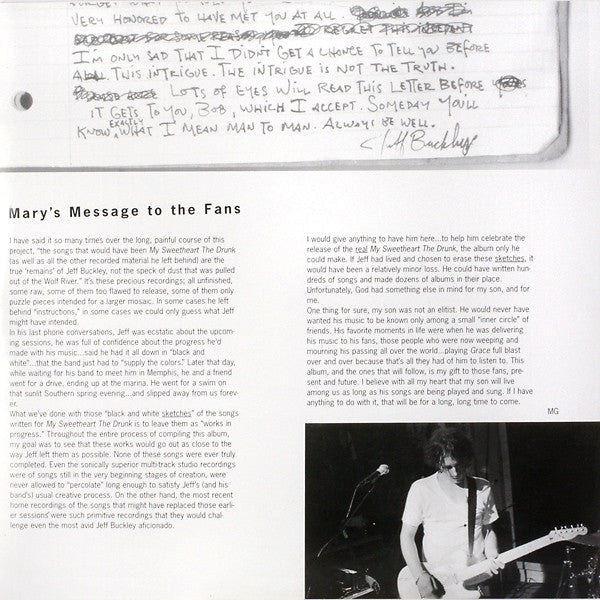 VERY HONORED TO HAVE MET YOU AT ALL
REGRET THIS INSTANT
I'M ONLY SAD THAT I DIDN'T GET A CHANCE TO TELL YOU BEFORE
ALL THIS INTRIGUE. THE INTRIGUE IS NOT THE TRUTH.
LOTS OF EYES WILL READ THIS LETTER BEFORE
IT GETS TO YOU, BOB, WHICH I ACCEPT. SOMEDAY YOU'LL
KNOW EXACTLY WHAT I MEAN MAN TO MAN. ALWAYS BE WELL.
Jeff Buckley
Mary's Message to the Fans
I have said it so many times over the long, painful course of this
project, "the songs that would have been My Sweetheart The Drunk
(as well as all the other recorded material he left behind) are the
true 'remains' of Jeff Buckley, not the speck of dust that was pulled
out of the Wolf River." It's these precious recordings; all unfinished,
some raw, some of them too flawed to release, some of them only
puzzle pieces intended for a larger mosaic. In some cases he left
behind "instructions," in some cases we could only guess what Jeff
might have intended.
In his last phone conversations, Jeff was ecstatic about the upcom-
ing sessions, he was full of confidence about the progress he'd
made with his music...said he had it all down in "black and
white"...that the band just had to "supply the colors." Later that day,
while waiting for his band to meet him in Memphis, he and a friend
went for a drive, ending up at the marina. He went for a swim on
that sunlit Southern spring evening...and slipped away from us forev-
er.
What we've done with those "black and white sketches" of the songs
written for My Sweetheart The Drunk is to leave them as "works in
progress." Throughout the entire process of compiling this album,
my goal was to see that these works would go out as close to the
way Jeff left them as possible. None of these songs were ever truly
completed. Even the sonically superior multi-track studio recordings
were of songs still in the very beginning stages of creation, were
never allowed to "percolate" long enough to satisfy Jeff's (and his
band's) usual creative process. On the other hand, the most recent
home recordings of the songs that might have replaced those earli-
er sessions were such primitive recordings that they would chal-
lenge even the most avid Jeff Buckley aficionado.
I would give anything to have him here...to help him celebrate the
release of the real My Sweetheart The Drunk, the album only he
could make. If Jeff had lived and chosen to erase these sketches, it
would have been a relatively minor loss. He could have written hun-
dreds of songs and made dozens of albums in their place.
Unfortunately, God had something else in mind for my son, and for
me.
One thing for sure, my son was not an elitist. He would never have
wanted his music to be known only among a small "inner circle" of
friends. His favorite moments in life were when he was delivering
his music to his fans, those people who were now weeping and
mourning his passing all over the world...playing Grace full blast
over and over because that's all they had of him to listen to. This
album, and the ones that will follow, is my gift to those fans, pre-
sent and future. I believe with all my heart that my son will live
among us as long as his songs are being played and sung. If I have
anything to do with it, that will be for a long, long time to come.
MG